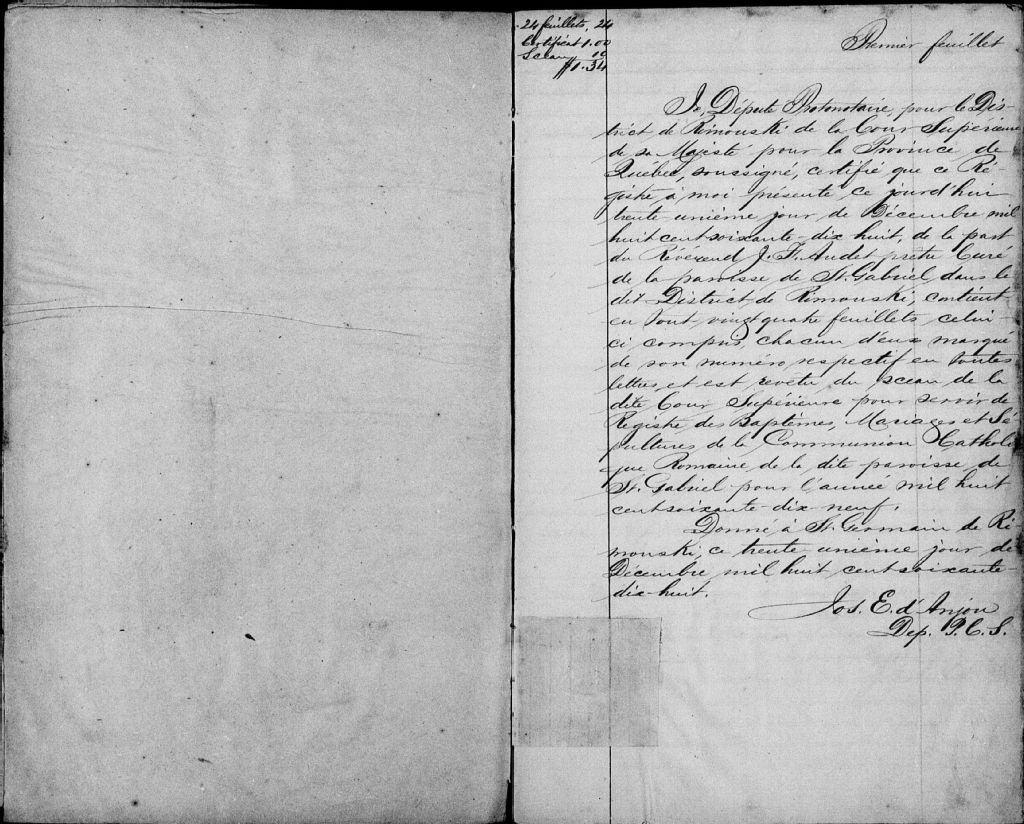 24 feuillets, 24
Certificat 1.00
Sceau 10
$1.34
Premier feuillet
Je, Député Protonotaire, pour le Dis-
trict de Rimouski de la Cour Supérieure
de sa Majesté pour la Province de
Québec, soussigné, certifié que ce Ré-
gistre, à moi présenté, ce jourd'hui
trente-unième jour de Décembre mil
huit cent soixante-dix huit, de la part
du Révérend J. F. Audet prêtre Curé
de la paroisse de St. Gabriel, dans le
dit District de Rimouski, contient-
en tout vingt quatre feuillets celui-
ci compris, chacun d'eux marqué
de son numéro respectif en toutes
lettres, et est revêtu du sceau de la
dite Cour Supérieure pour servir de
Registre des Baptêmes, Mariages et Sé-
pultures de la Communion Catholi-
que Romaine de la dite paroisse de
St. Gabriel pour l'année mil huit
cent soixante-dix-neuf.
Donné à St. Germain de Ri-
mouski, ce trente-unième jour de
Décembre mil huit cent soixante-
dix-huit.
Jos. E. d'Anjou
Dep. P. C. S.